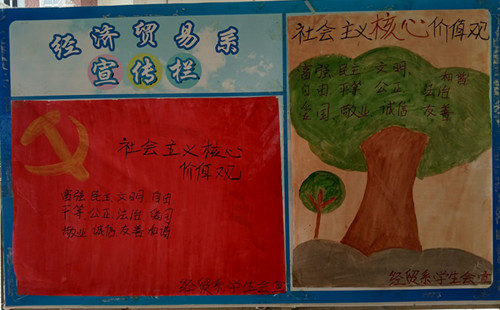 经济贸易系
宣传栏
社会主义核心
价值观
富强 民主 文明 自由
平等 公正 法治 爱国
敬业 诚信 友善 和谐
经贸系学生会宣
社会主义核心价值观
富强 民主 文明 和谐
自由 平等 公正 法治
爱国 敬业 诚信 友善
经贸系学生会宣